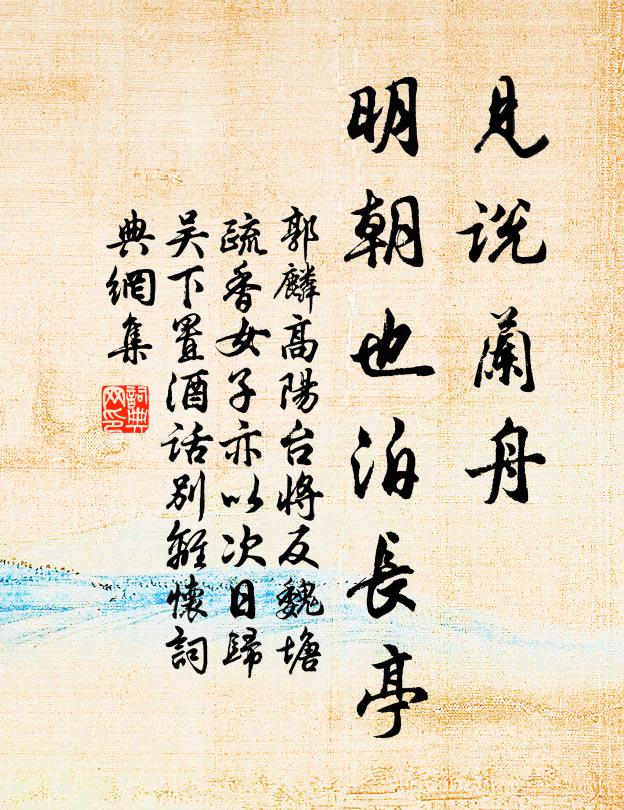 見説蘭舟
明朝也泊長亭
郭麟高陽台將反魏塘
疏香女子亦以次日歸
吴下置酒話别離懷詞
典網集
詞典
网印